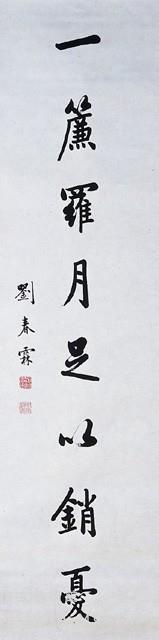 一簾羅月足以銷憂
劉春霖